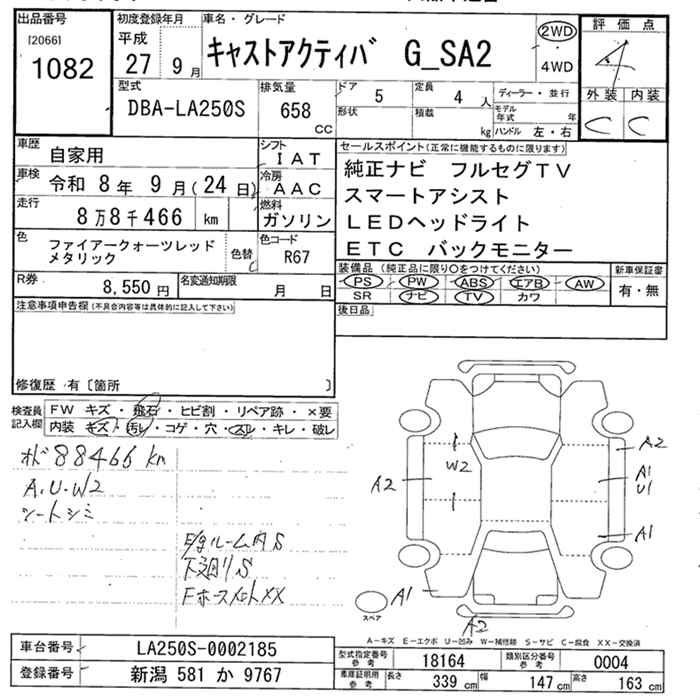 出品番号
[2066]
1082
初度登録年月
平成
27 9月
車名・グレード
キャストアクティバ G_SA2
2WD
4WD
評価点
4
外装 内装
C C
型式
DBA-LA250S
排気量
658
CC
ドア
5
形状
定員
4 人
積載
kg
ディーラー・並行
モデル年式 年
ハンドル 左・右
車歴
自家用
車検
令和 8年 9月(24日)
走行
8万8千466 km
シフト
IAT
冷房
AAC
燃料
ガソリン
色
ファイアークォーツレッド
メタリック
色替
色コード
R67
R券
8,550円
名変通知期限
月 日
セールスポイント(正常に機能するものに限ります)
純正ナビ フルセグTV
スマートアシスト
LEDヘッドライト
ETC バックモニター
装備品 (純正品に限り○をつけてください)
PS PW ABS エアB AW
SR ナビ TV カワ
新車保証書
有・無
後日品
注意事項申告欄 (不具合内容等は具体的に記入して下さい)
修復歴 有〔箇所 〕
検査員記入欄
FW キズ・飛石・ヒビ割・リペア跡・×要
内装 キズ・汚レ・コゲ・穴・スレ・キレ・破レ
オド 88466 km
A.U.W2
シートシミ
E/gルーム内S
下廻りS
A2
W2
A2
A1
U1
A1
A1
A2
スペア
A-キズ E-エクボ U-凹み W-補修跡 S-サビ C-腐食 XX-交換済
車台番号
LA250S-0002185
登録番号
新潟 581 か 9767
型式指定番号
参考
18164
類別区分番号
参考
0004
車庫証明用
参考
長さ 339cm 幅 147cm 高さ 163cm